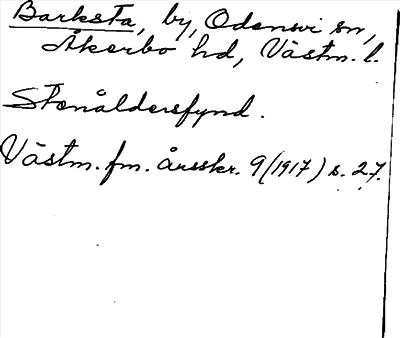 Barksta, by, Odensvi sn,
Åkerbo hd, Västm. l.
Stenåldersfynd.
Västm. fm. årsskr. 9 (1917) s. 27.